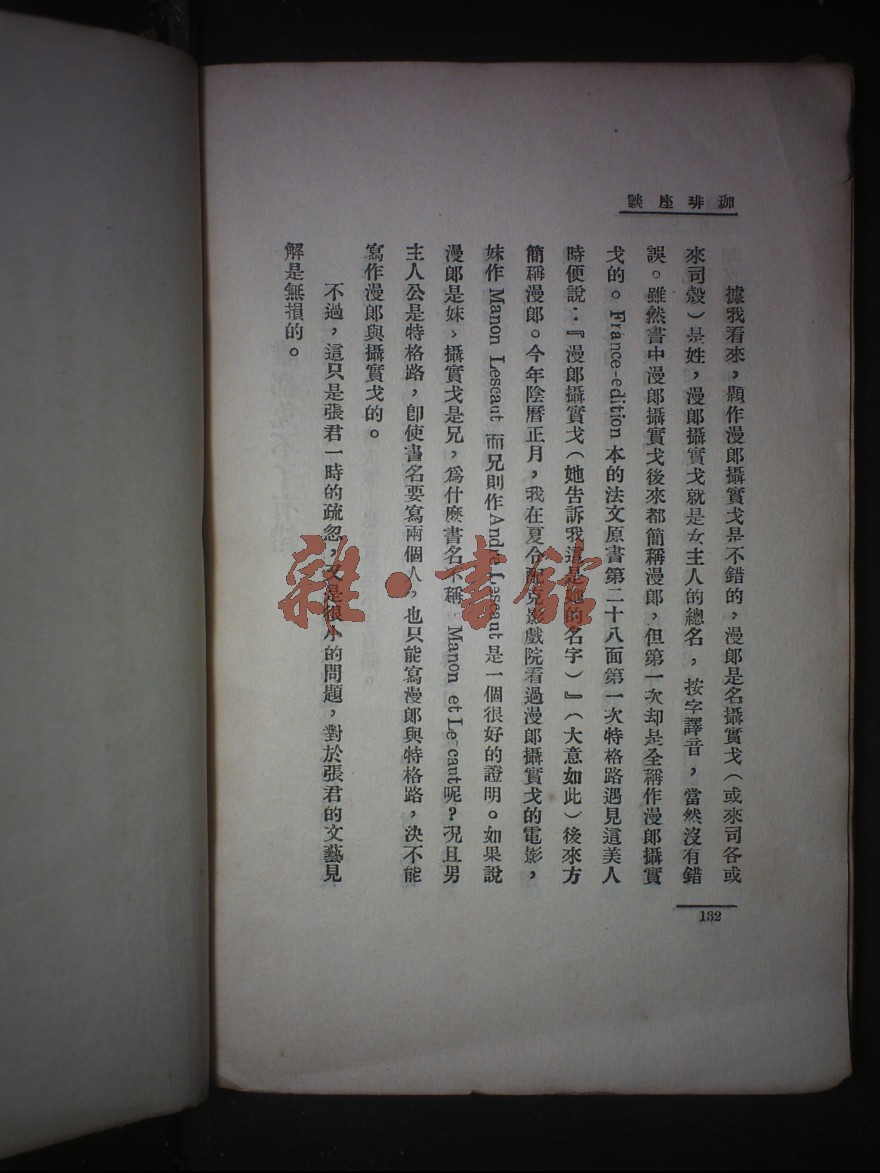 珈琲座談
據我看來，顯作漫郎攝實戈是不錯的，漫郎是名攝實戈（或來司各或
來司殼）是姓，漫郎攝實戈就是女主人的總名，按字譯音，當然沒有錯
誤。雖然書中漫郎攝實戈後來都簡稱漫郎，但第一次却是全稱作漫郎攝實
戈的。France-edition 本的法文原書第二十八面第一次特格路遇見這美人
時便說：『漫郎攝實戈（她告訴我這是她的名字）』（大意如此）後來方
簡稱漫郎。今年陰曆正月，我在夏令配克影戲院看過漫郎攝實戈的電影，
妹作 Manon Lescaut 而兄則作 André Lescaut 是一個很好的證明。如果說
漫郎是妹，攝實戈是兄，爲什麽書名不稱 Manon et Lescaut呢？况且男
主人公是特格路，卽使書名要寫兩個人，也只能寫漫郎與特格路，決不能
寫作漫郎與攝實戈的。
不過，這只是張君一時的疏忽，又是很小的問題，對於張君的文藝見
解是無損的。
132
雜·書館